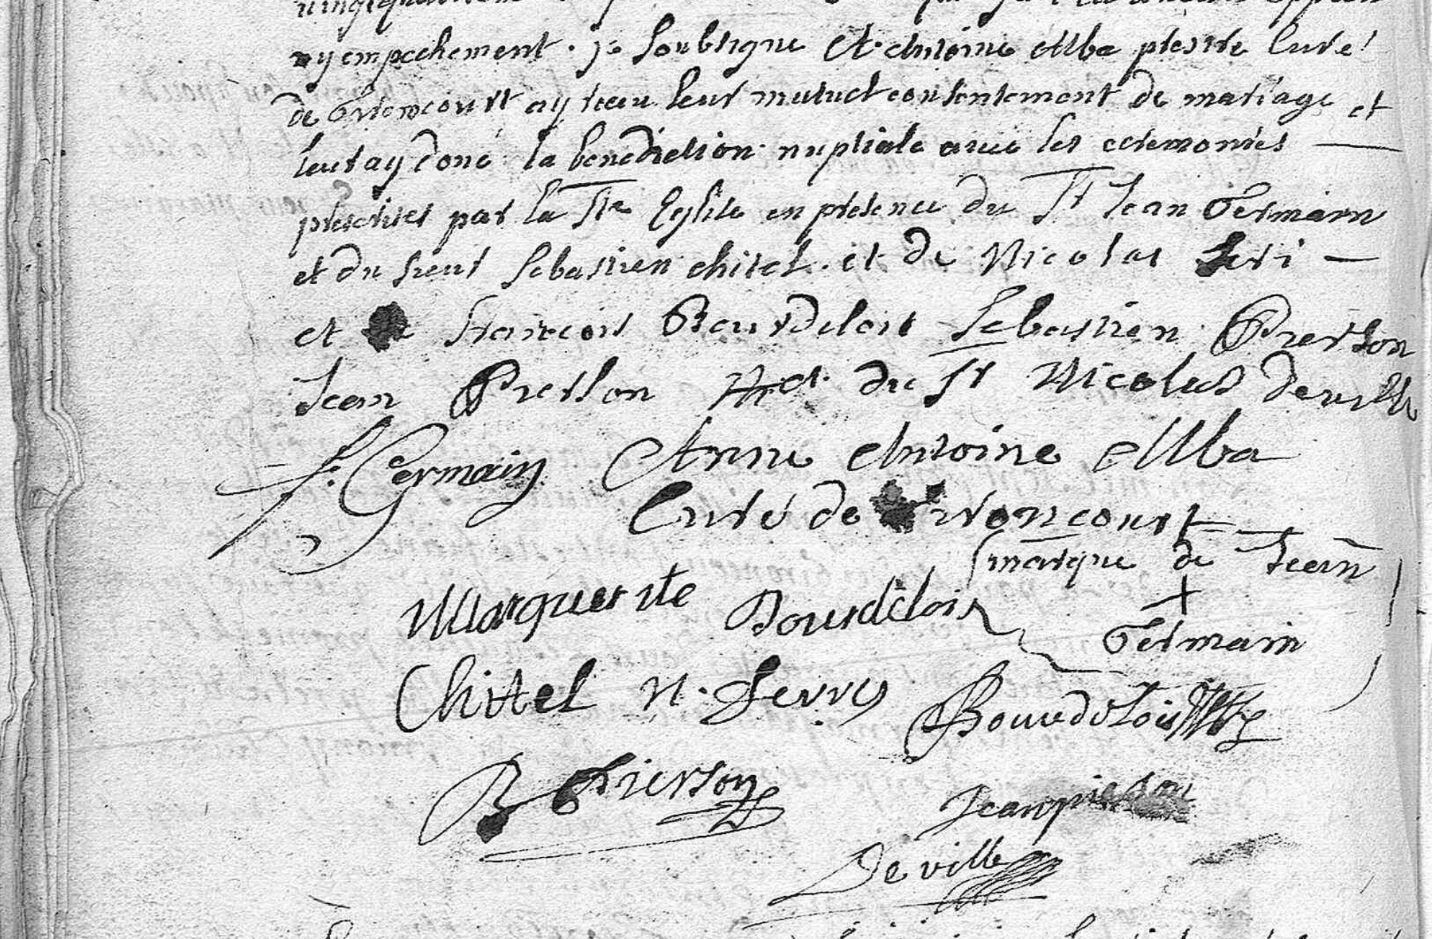 ny empechement. je soubsigne et Antoine Alba prestre Curé
de Vrroncourt ay receu leur mutuel consentement de mariage et
leur ay doné la benediction nuptiale avec les ceremonies
prescrites par la Ste Eglise en presence du Sr Jean Germain
et du sieur Sebastien chitel. et de Nicolas Seri
et françois Bourdelois Sebastien Pierson
Jean Pierson et du Sr Nicolas Deville
f. Germain Anne Antoine Alba
Curé de vroncourt
marque de Jean
+
Germain
Marguerite Bourdelois
Chittel N. Serry Bourdelois
Pierson
Jean pierson
De ville